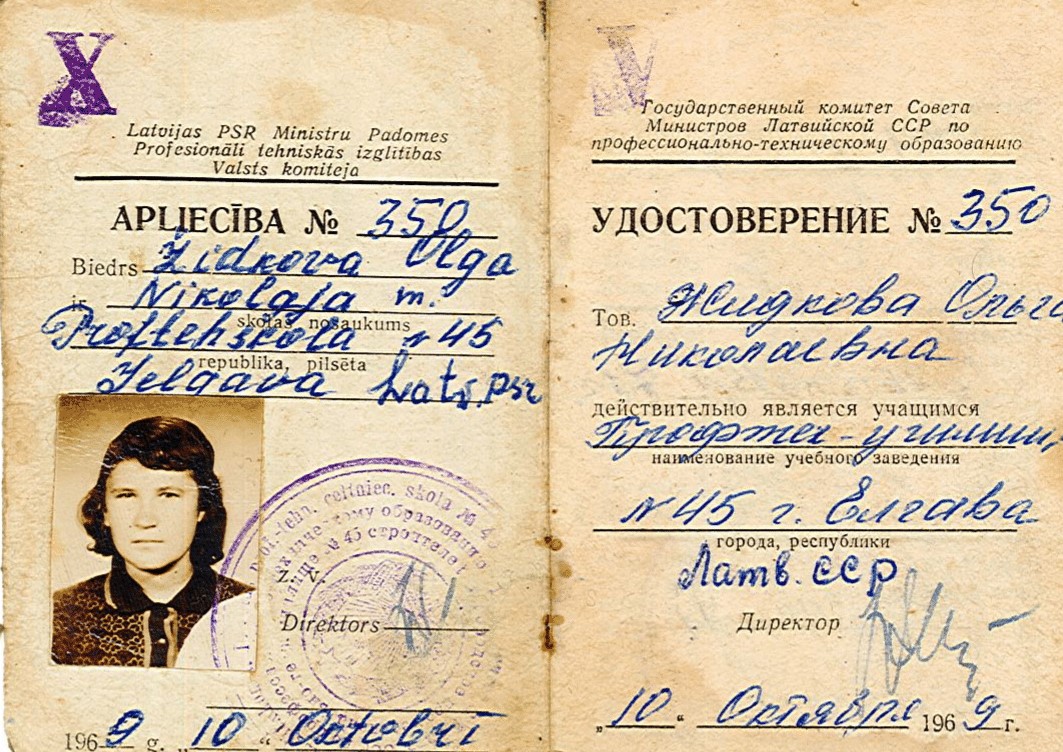 X
Latvijas PSR Ministru Padomes
Profesionāli tehniskās izglītības
Valsts komiteja
APLIECĪBA № 350
Biedrs Židkova Olga
ir Nikolaja m.
skolas nosaukums
Proftehskola №45
republika, pilsēta
Jelgava Latv. PSR
celtniec. skola №
образованию
№ 45 строителей
Z. v.
Directors
1969 g. „10“ Octobrī
Государственный комитет Совета
Министров Латвийской ССР по
профессионально-техническому образованию
УДОСТОВЕРЕНИЕ № 350
Тов. Жидкова Ольга
Николаевна
действительно является учащимся
Профтех-училищ
наименование учебного заведения
№45 г. Елгава
города, республики
Латв. ССР
Директор
„10“ Октября 1969 г.